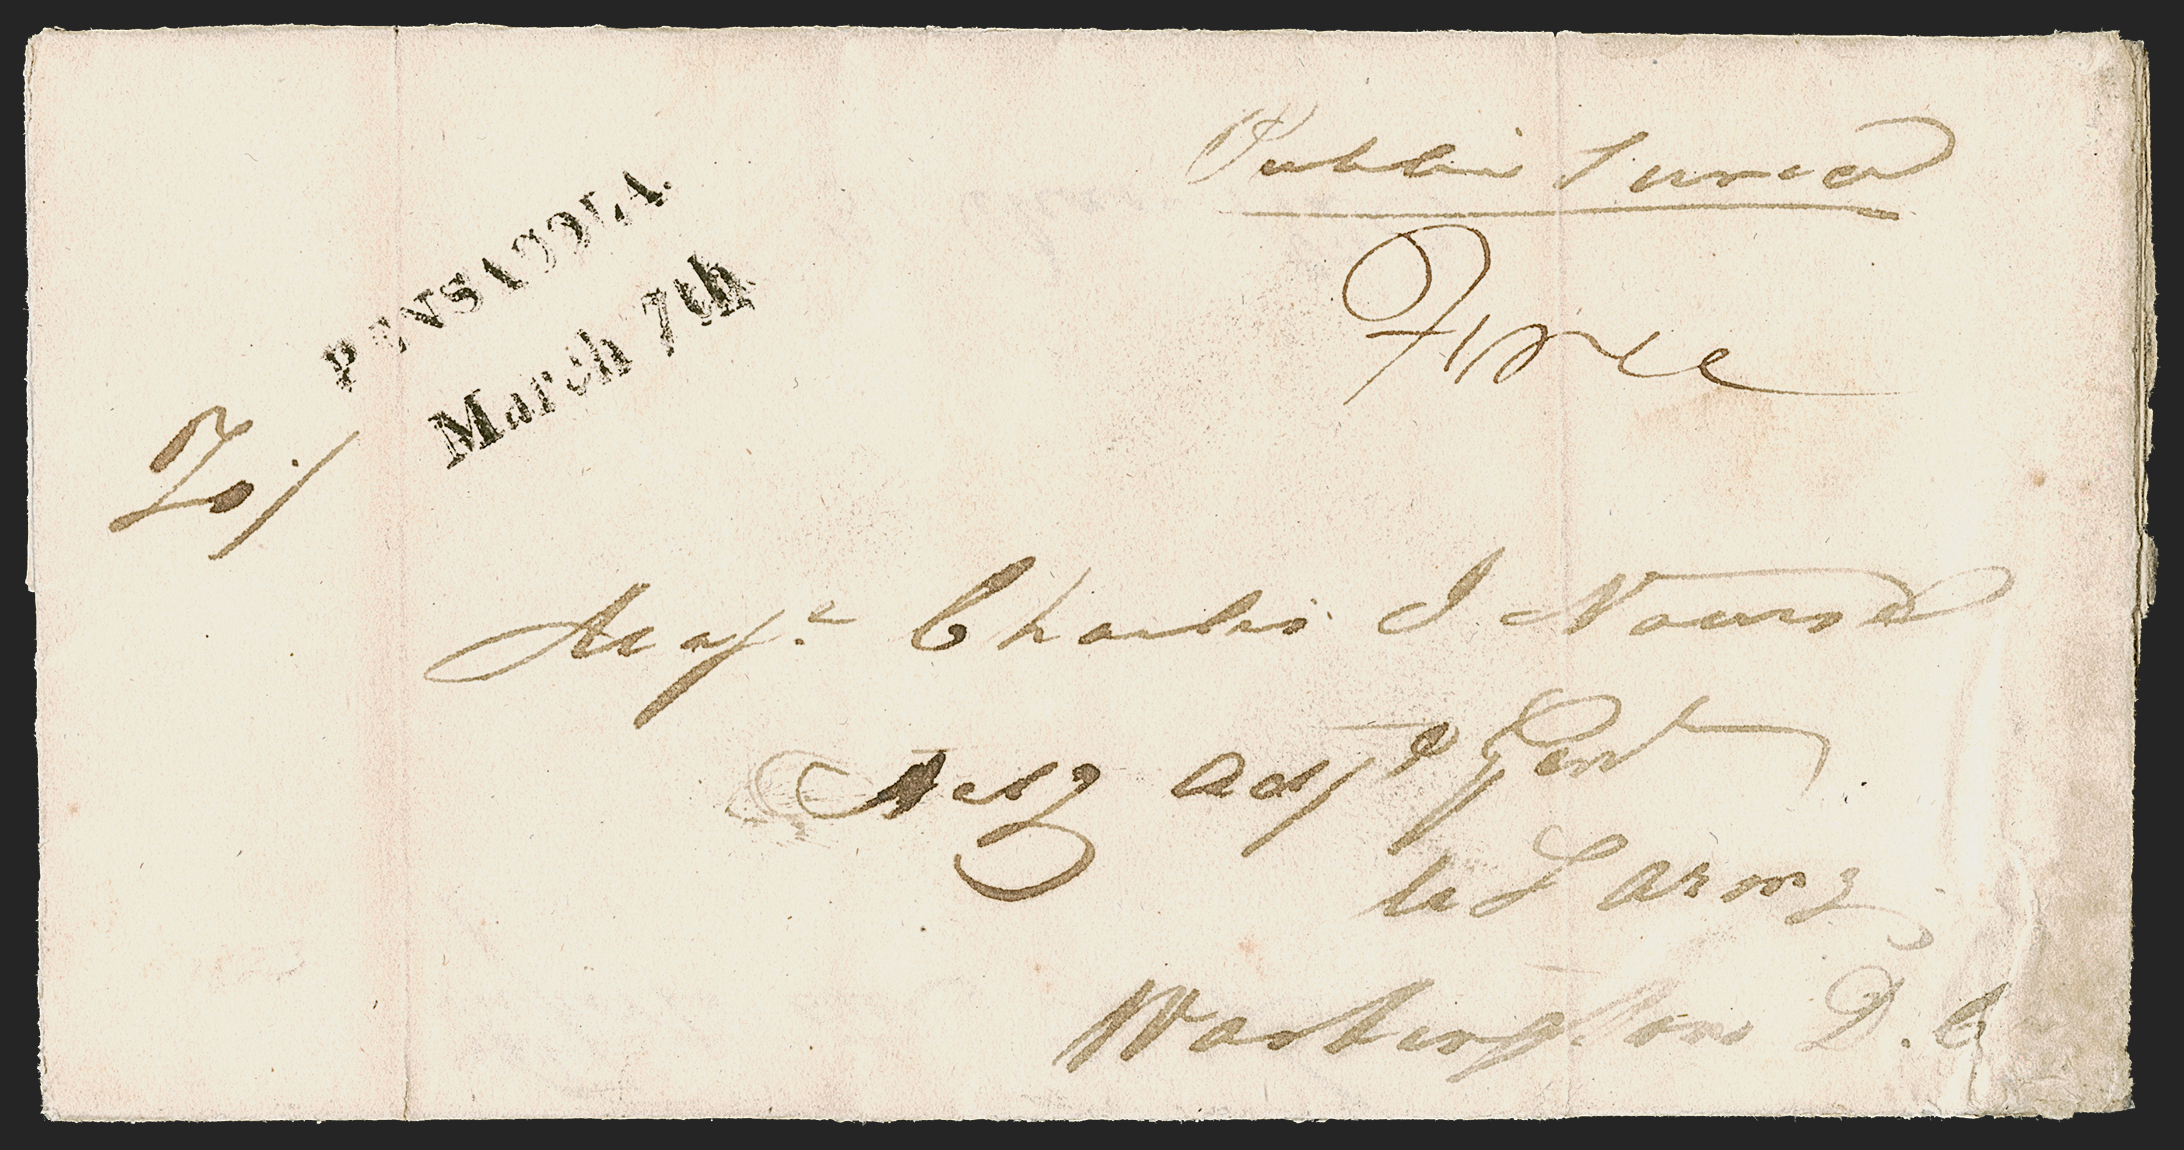 Public Service
Free
PENSACOLA.
March 7th
To/
Majr. Charles J Nourse
Actg Adjt Genl
U S Army
Washington D. C